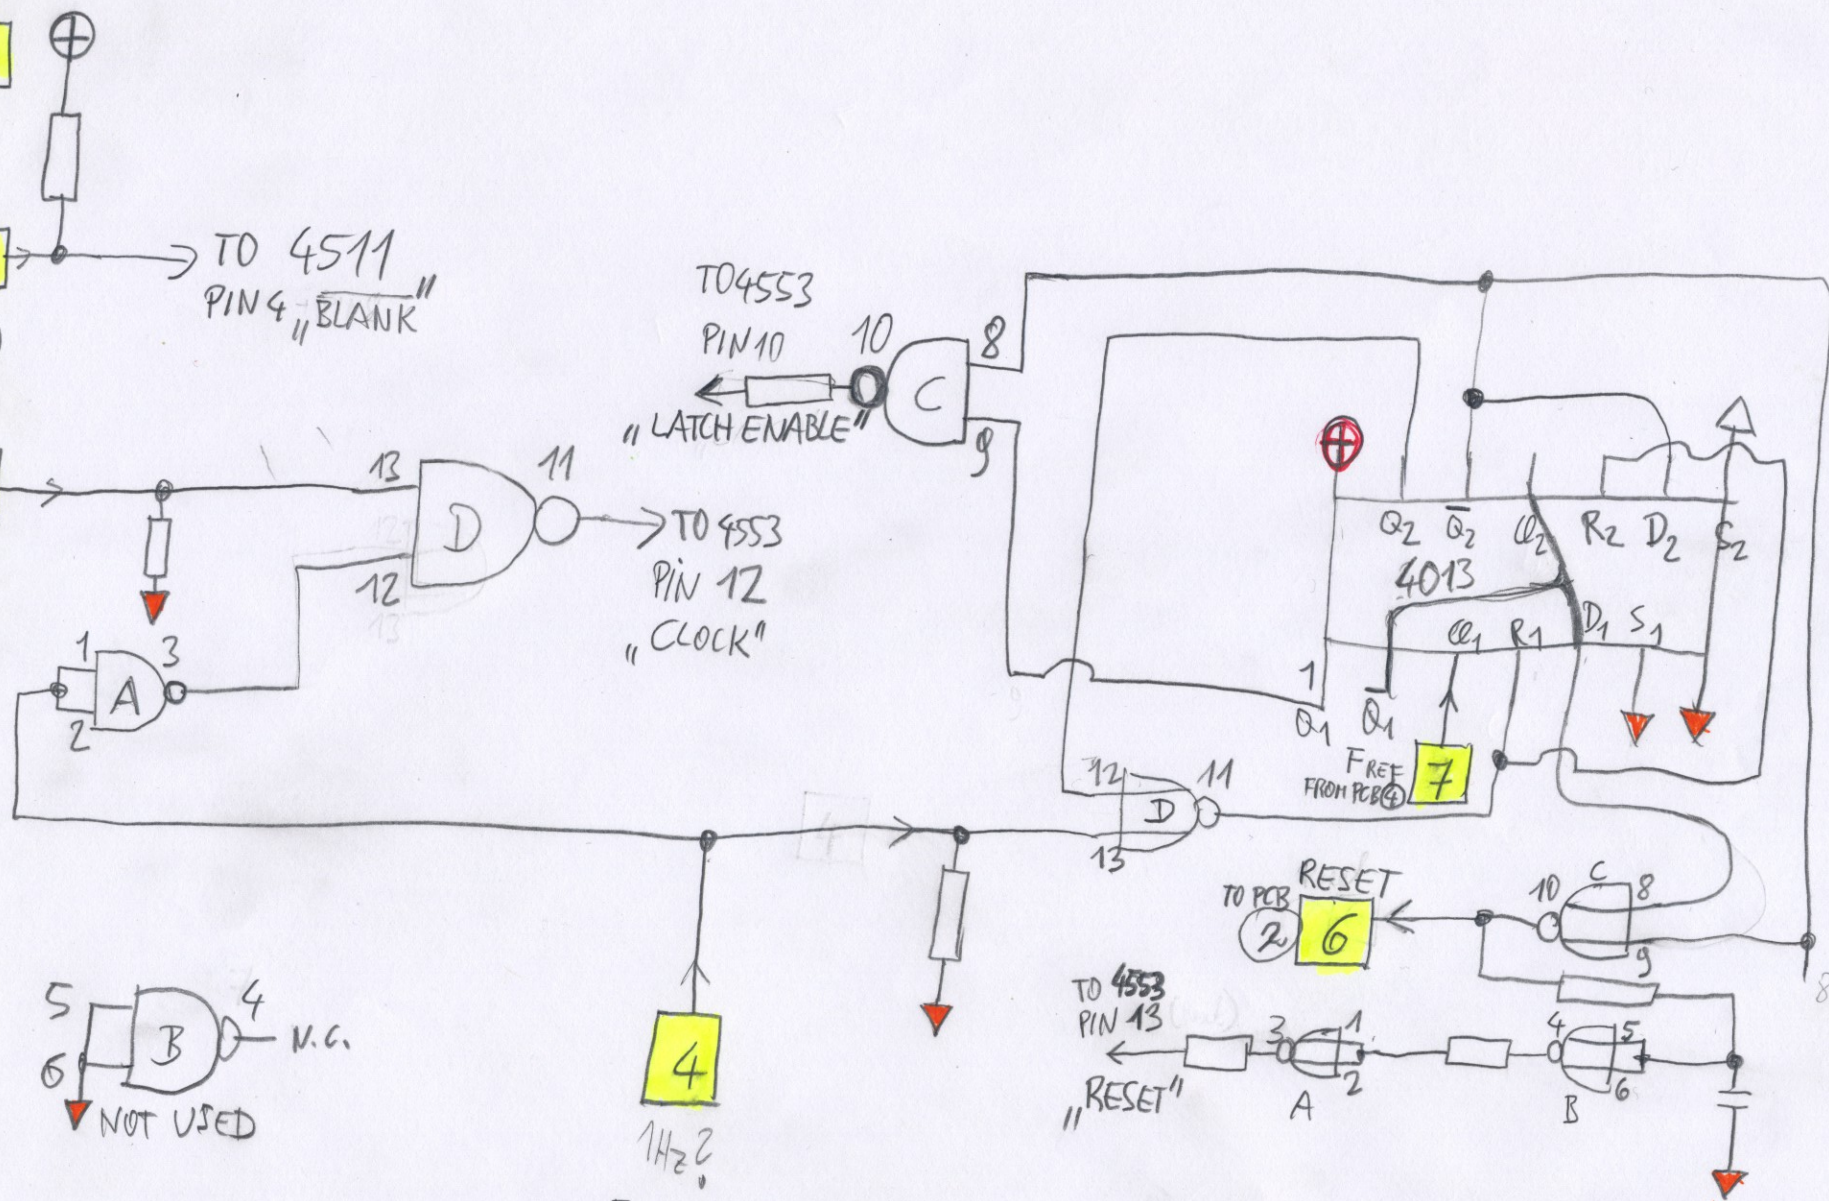 TO 4511
PIN 4 „BLANK"
TO 4553
PIN 10
„LATCH ENABLE"
10
C
8
9
13
D
11
12
TO 4553
PIN 12
„CLOCK"
1
A
3
2
Q2 Q̅2 Q2 R2 D2 S2
4013
Q1 R1 D1 S1
1
Q1
Q̅1
FREF
FROM PCB 4
7
12
D
11
13
4
RESET
TO PCB
2
6
10
C
8
9
TO 4553
PIN 13
„RESET"
3
1
2
A
4
5
6
B
8
5
B
4
N.C.
6
NOT USED
4
1Hz?